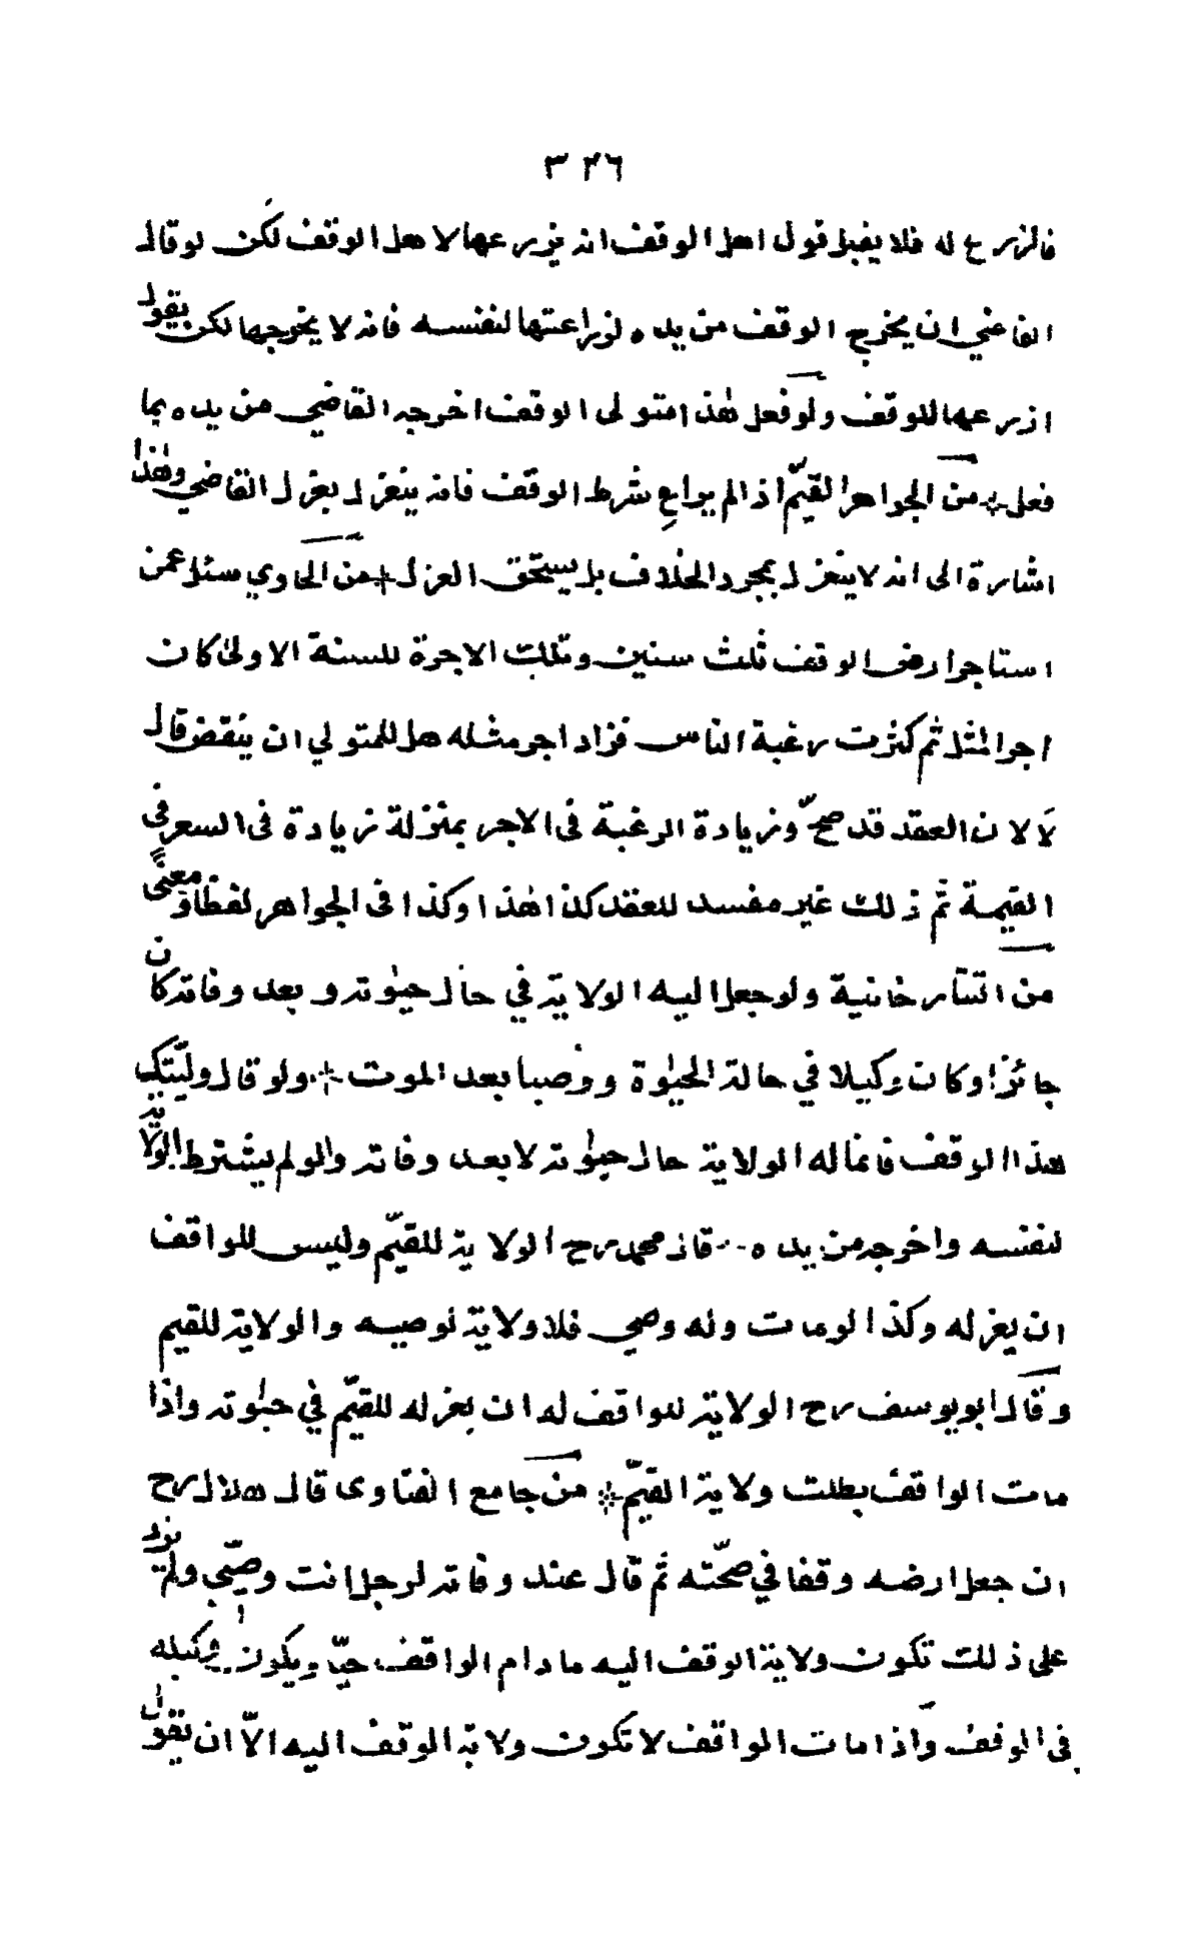 ٣٢٦
فالزرع له فلا يقبل قول اهل الوقف انه زرعها لاهل الوقف لكن لو قال
القاضي ان يخرج الوقف من يده لزراعتها لنفسه فانه لا يخرجها لكن يقول
ازرعها للوقف ولو فعل هذا متولى الوقف اخرجه القاضي من يده بما
فعل من الجواهر القيّم اذا لم يراعِ شرط الوقف فانه ينعزل بعزل القاضي وهذا
اشارة الى انه لا ينعزل بمجرد الخلاف بل يستحق العزل من الحاوي سئل عمن
استاجر ارض الوقف ثلث سنين وتلك الاجرة للسنة الاولى كان
اجر المثل ثم كثرت رغبة الناس فزاد اجر مثله هل للمتولي ان ينقض قال
لا لان العقد قد صحّ وزيادة الرغبة فى الاجر بمنزلة زيادة فى السعر في
القيمة ثم ذلك غير مفسد للعقد كذا هذا وكذا فى الجواهر لفظا ومعنًى
من التتارخانية ولو جعل اليه الولاية في حال حيٰوته وبعد وفاته كان
جائزا وكان وكيلا في حالة الحيٰوة ووصيا بعد الموت ولو قال وليّتك
هذا الوقف فانما له الولاية حال حيٰوته لا بعد وفاته والو لم يشترط الولاية
لنفسه واخرجه من يده قال محمد رح الولاية للقيّم وليس للواقف
ان يعزله وكذا لو مات وله وصي فلا ولاية لوصيه والولاية للقيم
وقال ابو يوسف رح الولاية للواقف له ان يعزله للقيّم في حيٰوته واذا
مات الواقف بطلت ولاية القيّم من جامع الفتاوى قال هلال رح
ان جعل ارضه وقفا في صحّته ثم قال عند وفاته لرجل انت وصيّي ولم يزد
على ذلك تكون ولاية الوقف اليه ما دام الواقف حيّا ويكون وكيله
فى الوقف واذا مات الواقف لا تكون ولاية الوقف اليه الّا ان يقول